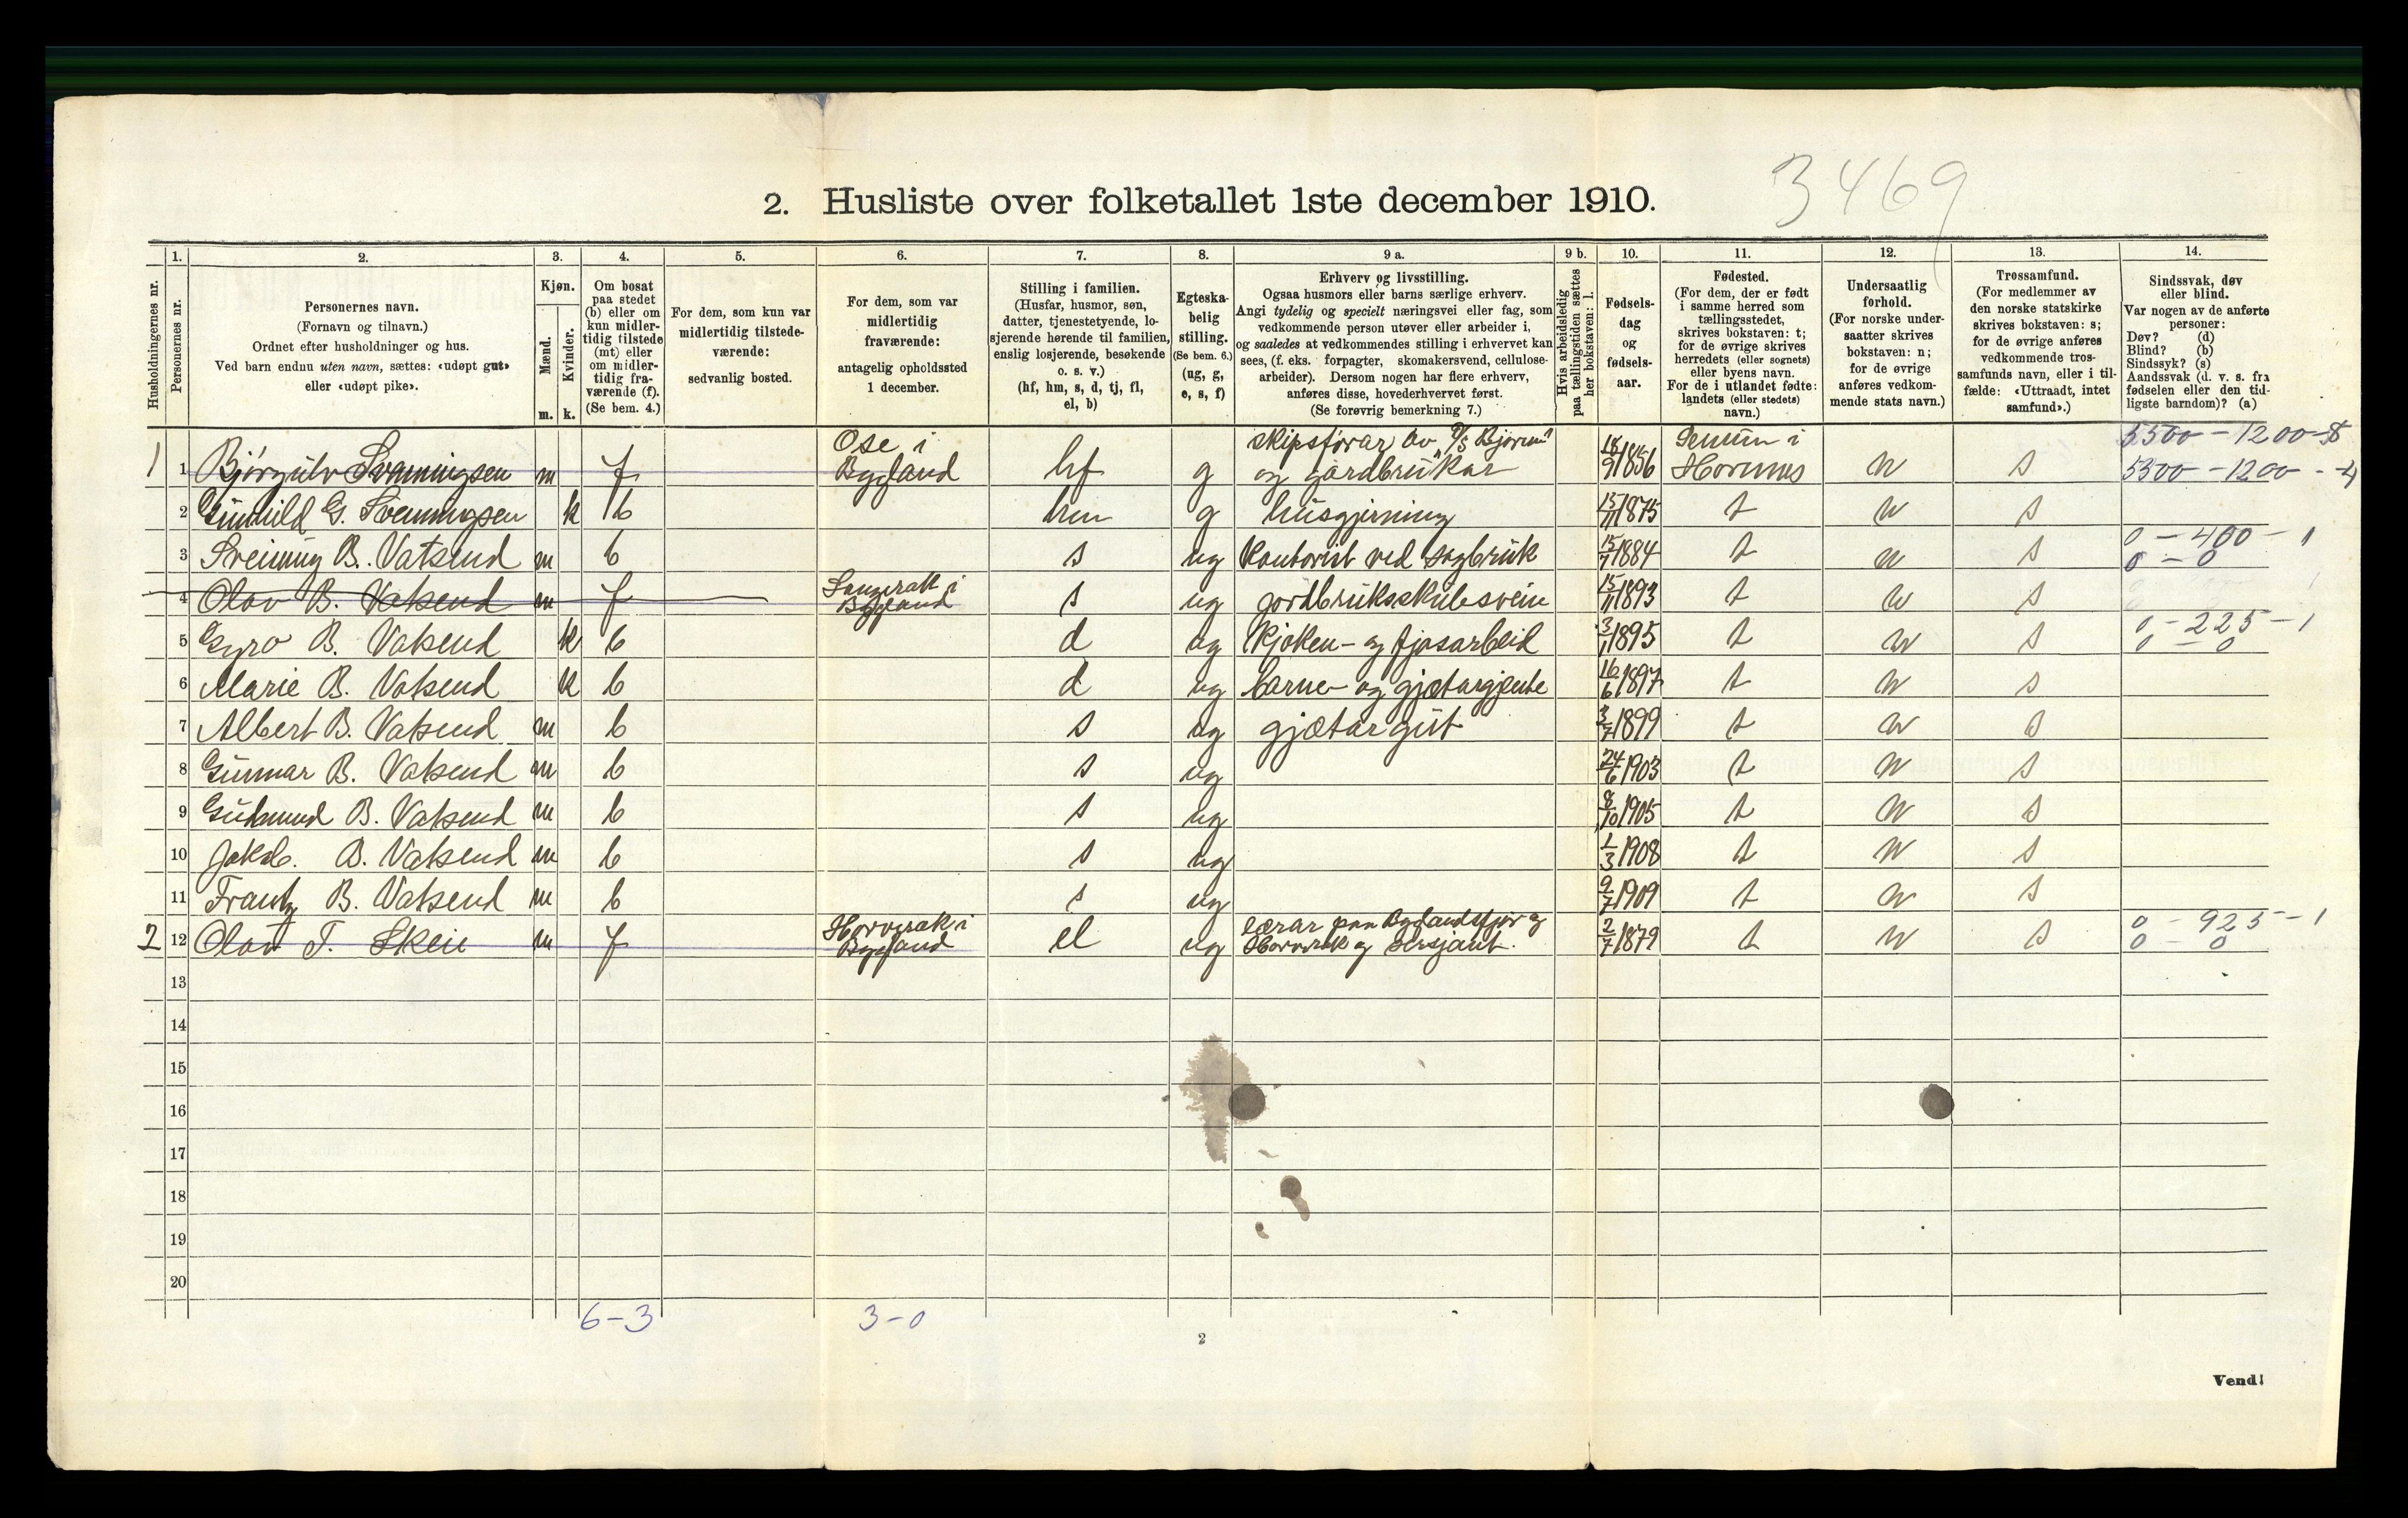 3469
2. Husliste over folketallet 1ste december 1910.
Husholdningernes nr.
1.
Personernes nr.
2.
Personernes navn.
(Fornavn og tilnavn.)
Ordnet efter husholdninger og hus.
Ved barn endnu uten navn, sættes: «udøpt gut»
eller «udøpt pike».
3.
Kjøn.
Mænd.
m.
Kvinder.
k.
4.
Om bosat
paa stedet
(b) eller om
kun midler-
tidig tilstede
(mt) eller
om midler-
tidig fra-
værende (f).
(Se bem. 4.)
5.
For dem, som kun var
midlertidig tilstede-
værende:
sedvanlig bosted.
6.
For dem, som var
midlertidig
fraværende:
antagelig opholdssted
1 december.
7.
Stilling i familien.
(Husfar, husmor, søn,
datter, tjenestetyende, lo-
sjerende hørende til familien,
enslig losjerende, besøkende
o. s. v.)
(hf, hm, s, d, tj, fl,
el, b)
8.
Egteska-
belig
stilling.
(Se bem. 6.)
(ug, g,
e, s, f)
9 a.
Erhverv og livsstilling.
Ogsaa husmors eller barns særlige erhverv.
Angi tydelig og specielt næringsvei eller fag, som
vedkommende person utøver eller arbeider i,
og saaledes at vedkommendes stilling i erhvervet kan
sees, (f. eks. forpagter, skomakersvend, cellulose-
arbeider). Dersom nogen har flere erhverv,
anføres disse, hovederhvervet først.
(Se forøvrig bemerkning 7.)
9 b.
Hvis arbeidsledig
paa tællingstiden sættes
her bokstaven: l.
10.
Fødsels-
dag
og
fødsels-
aar.
11.
Fødested.
(For dem, der er født
i samme herred som
tællingsstedet,
skrives bokstaven: t;
for de øvrige skrives
herredets (eller sognets)
eller byens navn.
For de i utlandet fødte:
landets (eller stedets)
navn.)
12.
Undersaatlig
forhold.
(For norske under-
saatter skrives
bokstaven: n;
for de øvrige
anføres vedkom-
mende stats navn.)
13.
Trossamfund.
(For medlemmer av
den norske statskirke
skrives bokstaven: s;
for de øvrige anføres
vedkommende tros-
samfunds navn, eller i til-
fælde: «Uttraadt, intet
samfund».)
14.
Sindssvak, døv
eller blind.
Var nogen av de anførte
personer:
Døv? (d)
Blind? (b)
Sindssyk? (s)
Aandssvak (d. v. s. fra
fødselen eller den tid-
ligste barndom)? (a)
1 1 Bjørgulv Svenningsen m f Ose i Bygland hf g skipsførar av og gardbrukar 18/9 1856 Hornnes n s 5500 - 1200
5300 - 1200 - 4
2 Gunhild G. Svenningsen k b hm g husgjerning 15/11 1875 t n s
3 Sveinung B. Vatsend m b s ug kontorist ved sagbruk 15/7 1884 t n s 0 - 400 - 1
0 - 0
4 Olav B. Vatsend m f Bygland s ug jordbruksskulesvein 15/11 1893 t n s
5 Gyro B. Vatsend k b d ug kjøken- og fjøsarbeid 3/1 1895 t n s 0 - 225 - 1
0 - 0
6 Marie B. Vatsend k b d ug barne- og gjætargjente 16/6 1897 t n s
7 Albert B. Vatsend m b s ug gjætargut 3/7 1899 t n s
8 Gunnar B. Vatsend m b s ug 24/6 1903 t n s
9 Gudmund B. Vatsend m b s ug 8/10 1905 t n s
10 Jakob. B. Vatsend m b s ug 1/3 1908 t n s
11 Frantz B. Vatsend m b s ug 9/7 1909 t n s
2 12 Olav T. Skeie m f Horverak i Bygland el ug lærar paa Bygландsfjor og Horverak og sersjant. 2/7 1879 t n s 0 - 925 - 1
0 - 0
13
14
15
16
17
18
19
20
6-3
3-0
2
Vend!